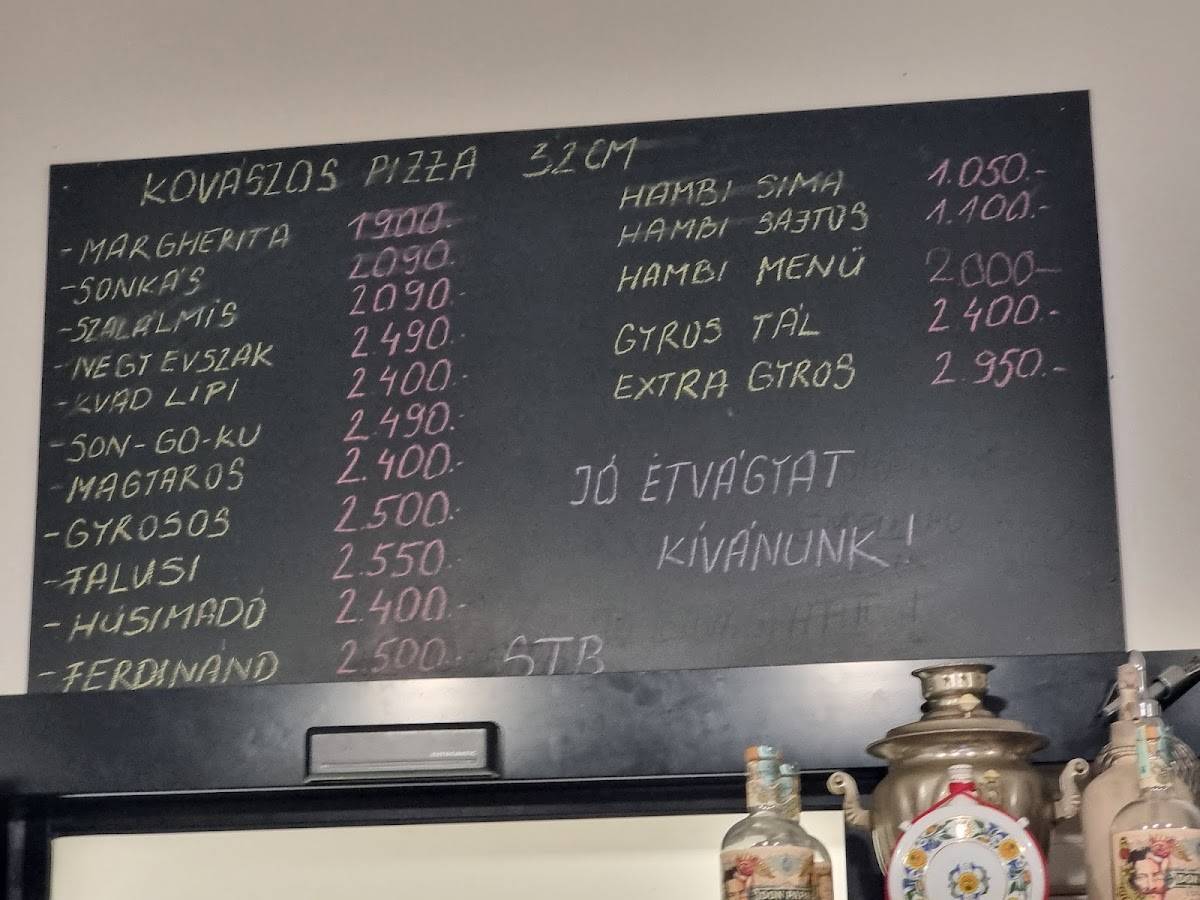 KOVÁSZOS PIZZA 32CM
-MARGHERITA 1900.-
-SONKÁS 2090.-
-SZALÁLMIS 2090.-
-NEGY EVSZAK 2.490.-
-KVAD LIPI 2.400.-
-SON-GO-KU 2.490.-
-MAGYAROS 2.400.-
-GYROSOS 2.500.-
-FALUSI 2.550.
-HÚSIMADÓ 2.400.-
-FERDINÁND 2.500.- STB
HAMBI SIMA 1.050.-
HAMBI SAJTOS 1.100.-
HAMBI MENÜ 2.000-
GYROS TÁL 2400.-
EXTRA GYROS 2.950.-
JÓ ÉTVÁGYAT
KÍVÁNUNK!